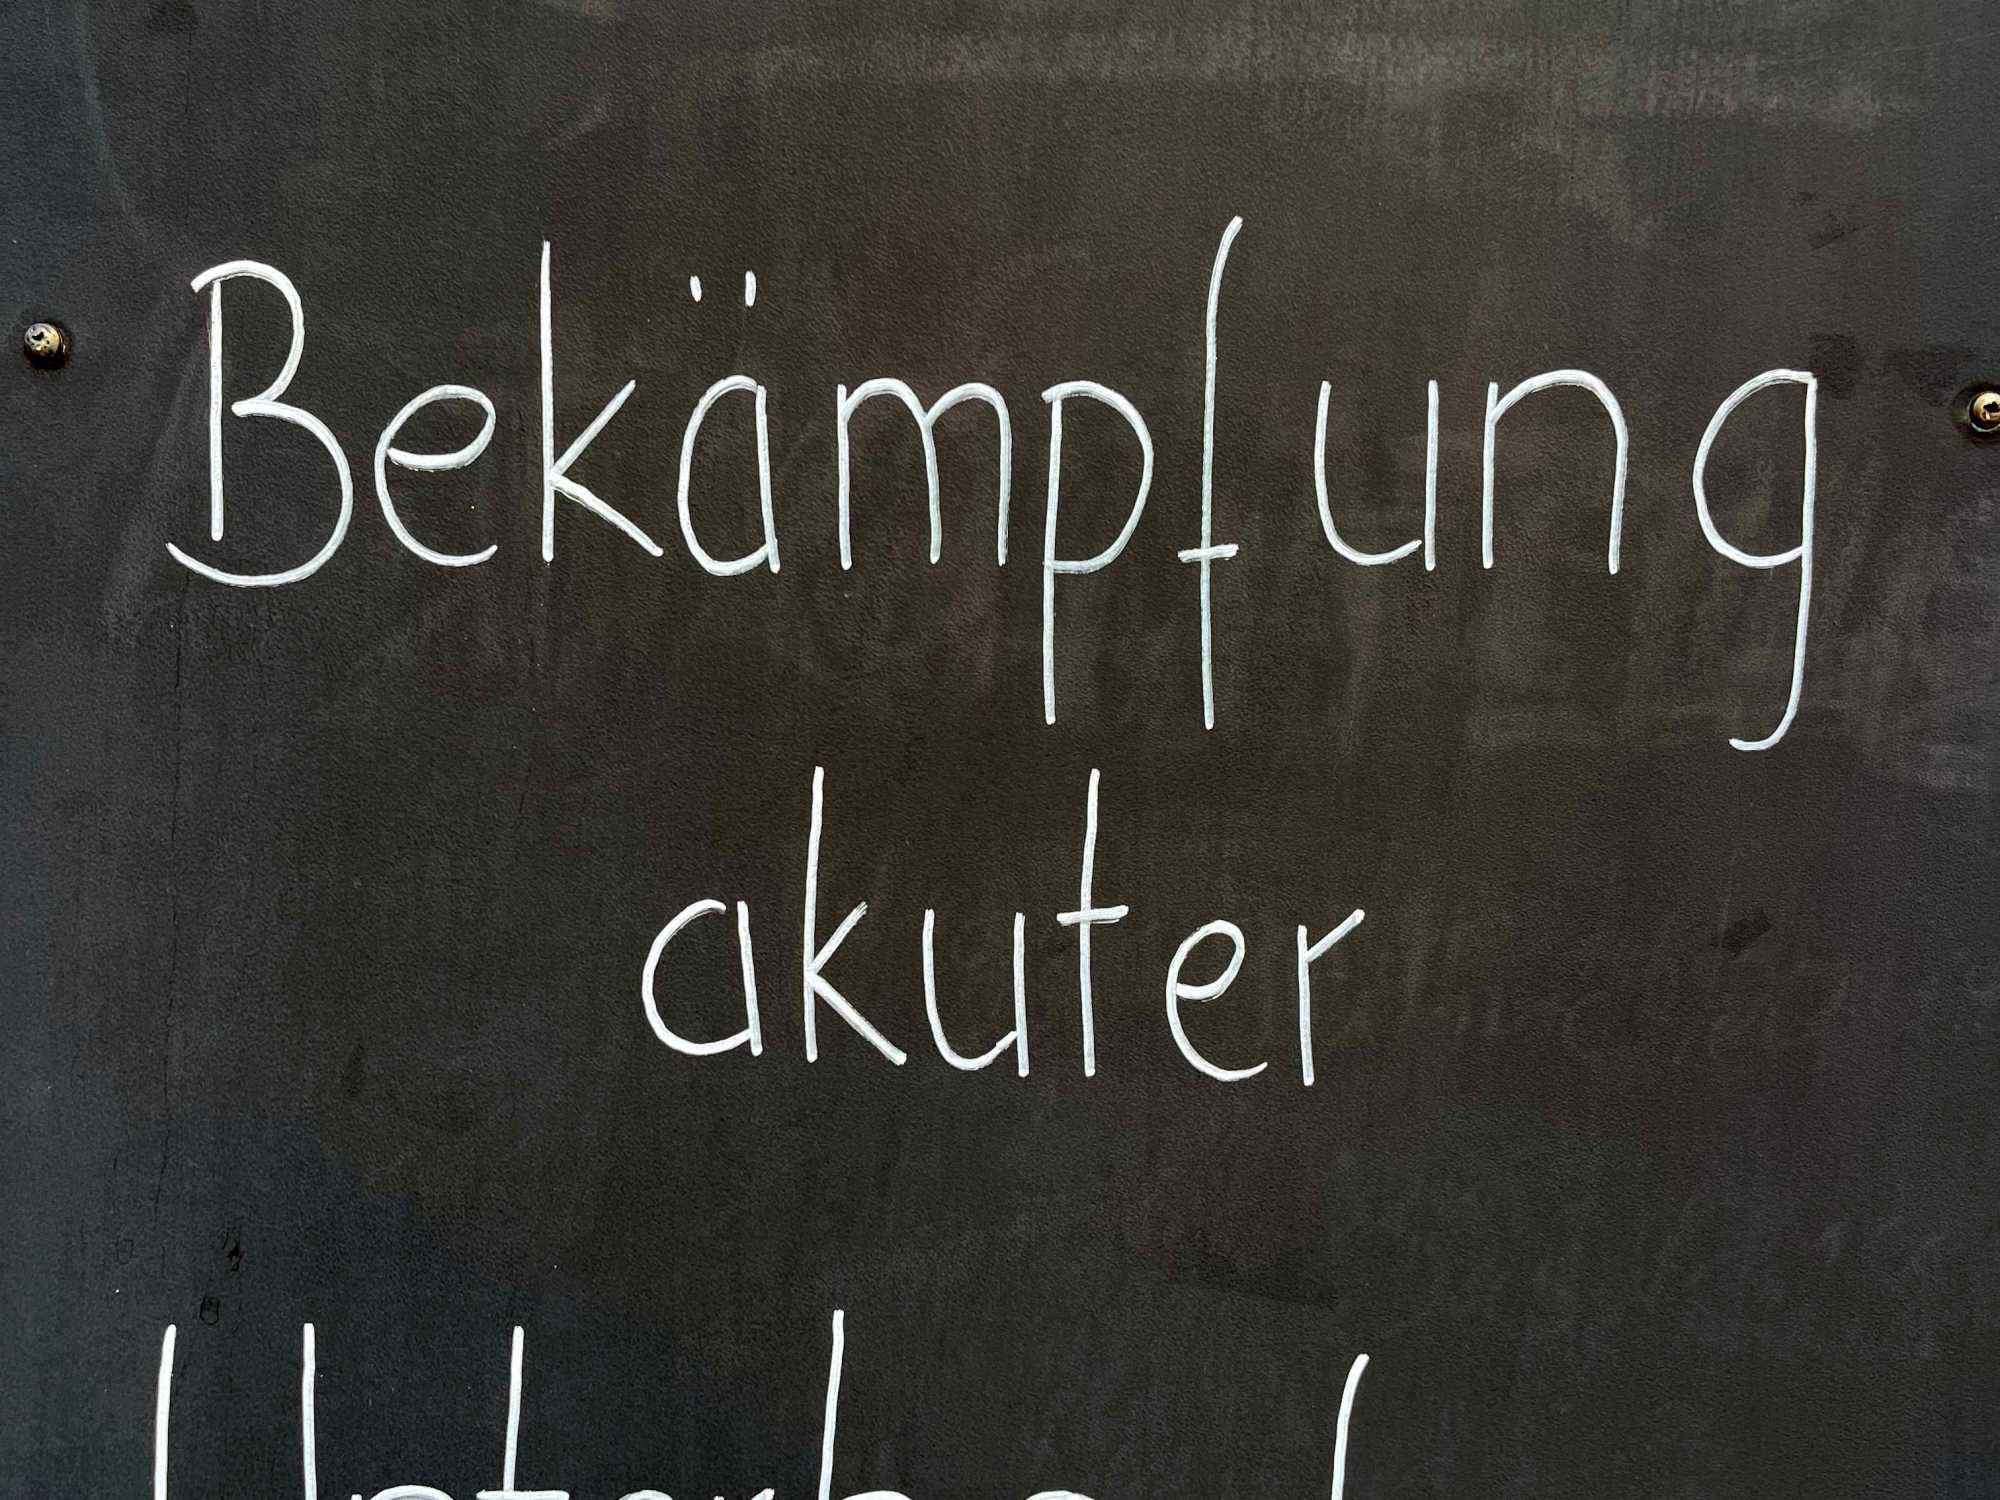 Bekämpfung
akuter